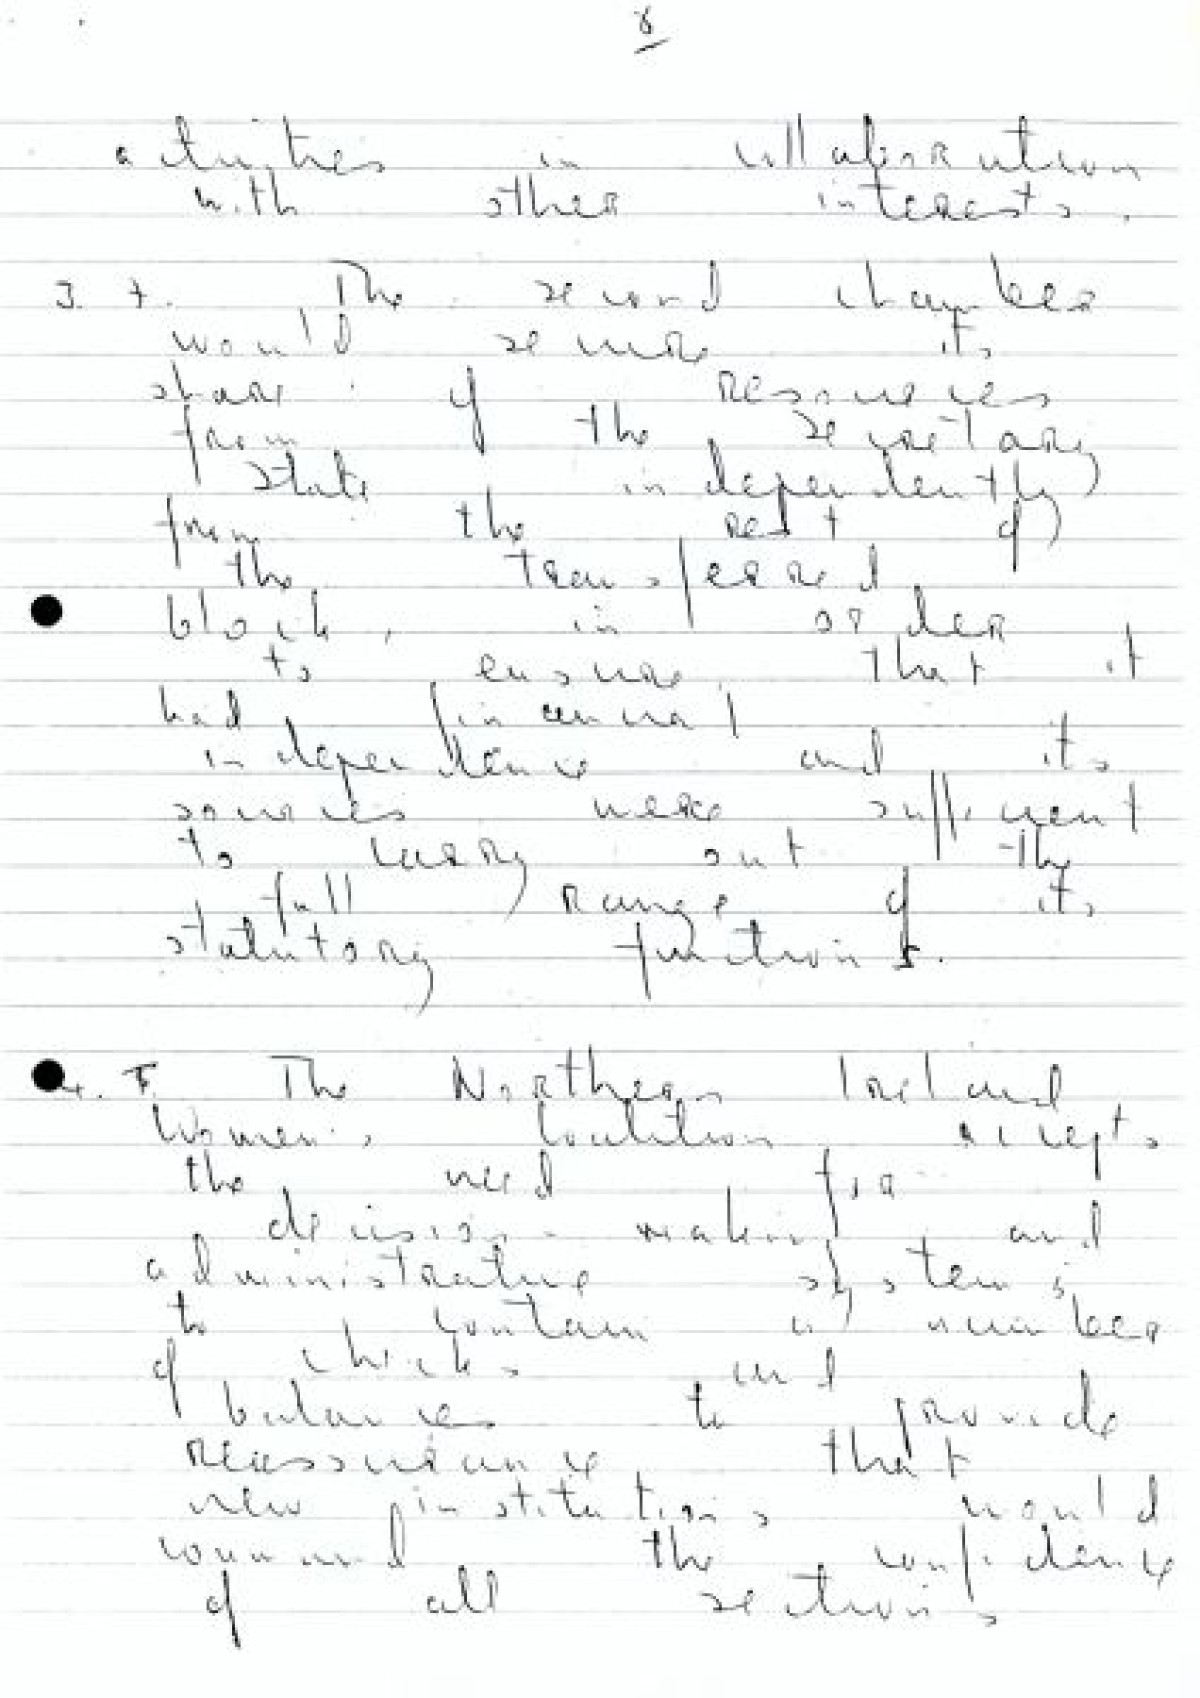 8
activities in collaboration
with other interests.
3. 4. The second chamber
would secure its
share of resources
from the Secretary
State independently
from the rest of
the transferred
block, in order
to ensure that it
had financial
independence and its
sources were sufficient
to carry out the
full range of its
statutory functions.
4. The Northern Ireland
Women's Coalition accepts
the need for
decision-making and
administrative systems
to contain a number
of checks and
balances to provide
reassurance that
new institutions would
command the confidence
of all sections